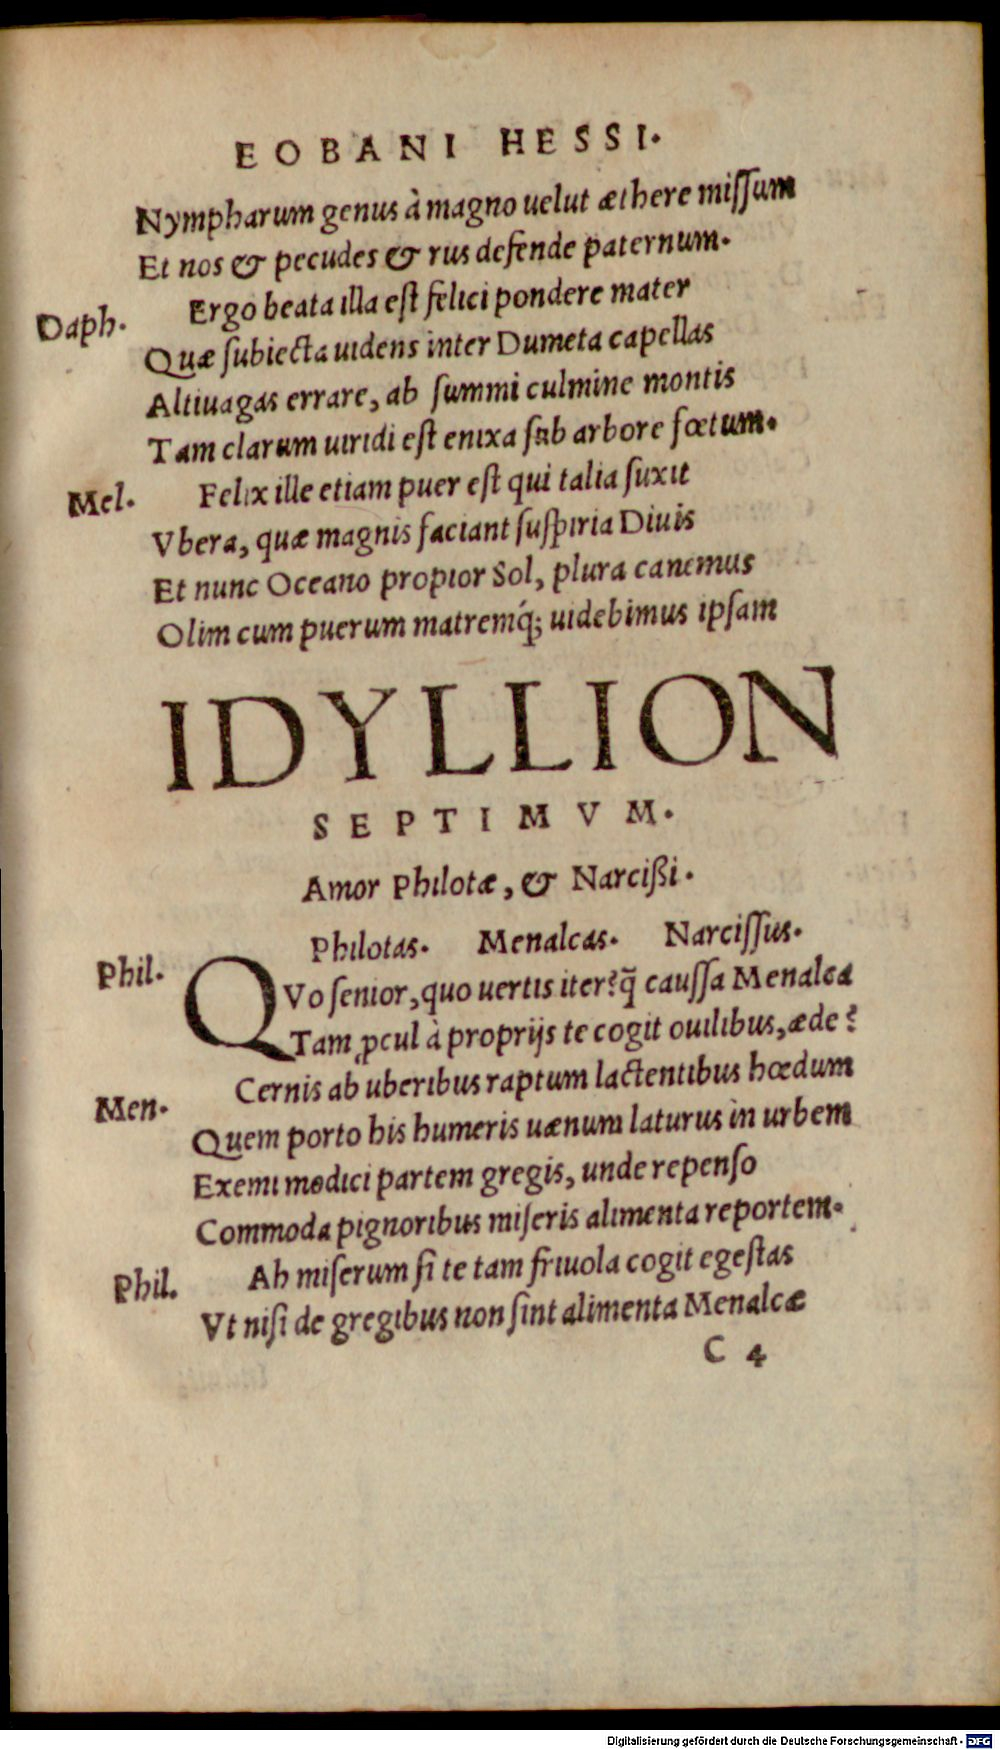 EOBANI HESSI.
Nympharum genus à magno uelut æthere miſſum
Et nos & pecudes & rus defende paternum.
Daph. Ergo beata illa eſt felici pondere mater
Quæ ſubiecta uidens inter Dumeta capellas
Altiuagas errare, ab ſummi culmine montis
Tam clarum uiridi eſt enixa ſub arbore fœtum.
Mel. Felix ille etiam puer eſt qui talia ſuxit
Vbera, quæ magnis faciant ſuſpiria Diuis
Et nunc Oceano propior Sol, plura canemus
Olim cum puerum matremq́; uidebimus ipſam
IDYLLION
SEPTIMVM.
Amor Philotæ, & Narcißi.
Philotas. Menalcas. Narciſſus.
Phil. QVo ſenior, quo uertis iter? q̃ cauſſa Menalca
Tam ꝓcul à proprijs te cogit ouilibus, æde?
Men. Cernis ab uberibus raptum lactentibus hœdum
Quem porto his humeris uænum laturus in urbem
Exemi modici partem gregis, unde repenſo
Commoda pignoribus miſeris alimenta reportem.
Phil. Ah miſerum ſi te tam friuola cogit egeſtas
Vt niſi de gregibus non ſint alimenta Menalcæ
C 4
Digitalisierung gefördert durch die Deutsche Forschungsgemeinschaft - DFG